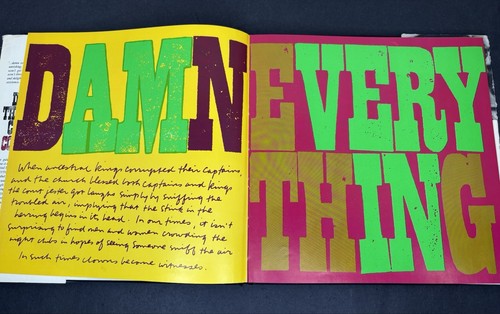 DAMN
When ancestral kings corrupted their captains
and the church blessed both captains and kings
the court jester got laughs simply by sniffing the
troubled air, implying that the stink in the
herring begins in its head. In our times, it isn't
surprising to find men and women crowding the
night clubs in hopes of seeing someone sniff the air
In such times clowns become witnesses.
EVERY
THING